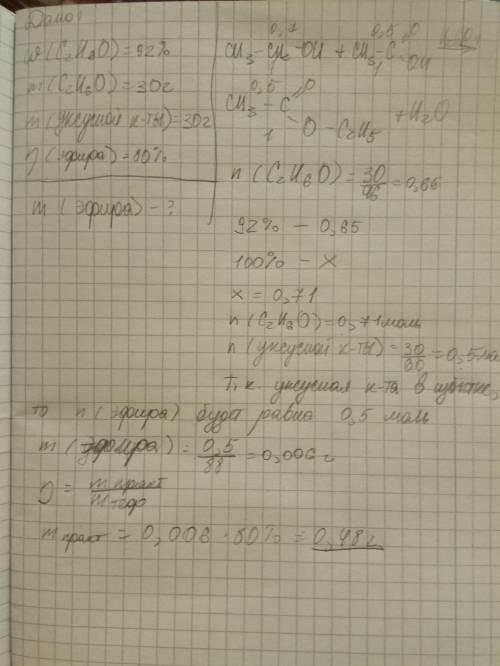 Дано:
ω(C₂H₈O)=92%
m(C₂H₈O)=30г
m(уксусной к-ты)=30г
η(эфира)=80%
m(эфира)-?
0,7 0,5
CH₃-CH₂-OH + CH₃-C O OH
1
0,5
CH₃-C O O-C₂H₅ +H₂O
1
n(C₂H₆O)=30/46=0,65
92% - 0,65
100% - x
x=0,71
n(C₂H₈O)=0,71моль
n(уксусной к-ты)=30/60=0,5мо
Т.к. уксусная к-та в
то n(эфира) будет равна 0,5 моль
m(эфира)=0,5/88=0,006г
η=mпракт/mтеор
mпракт=0,006·80%=0,48г